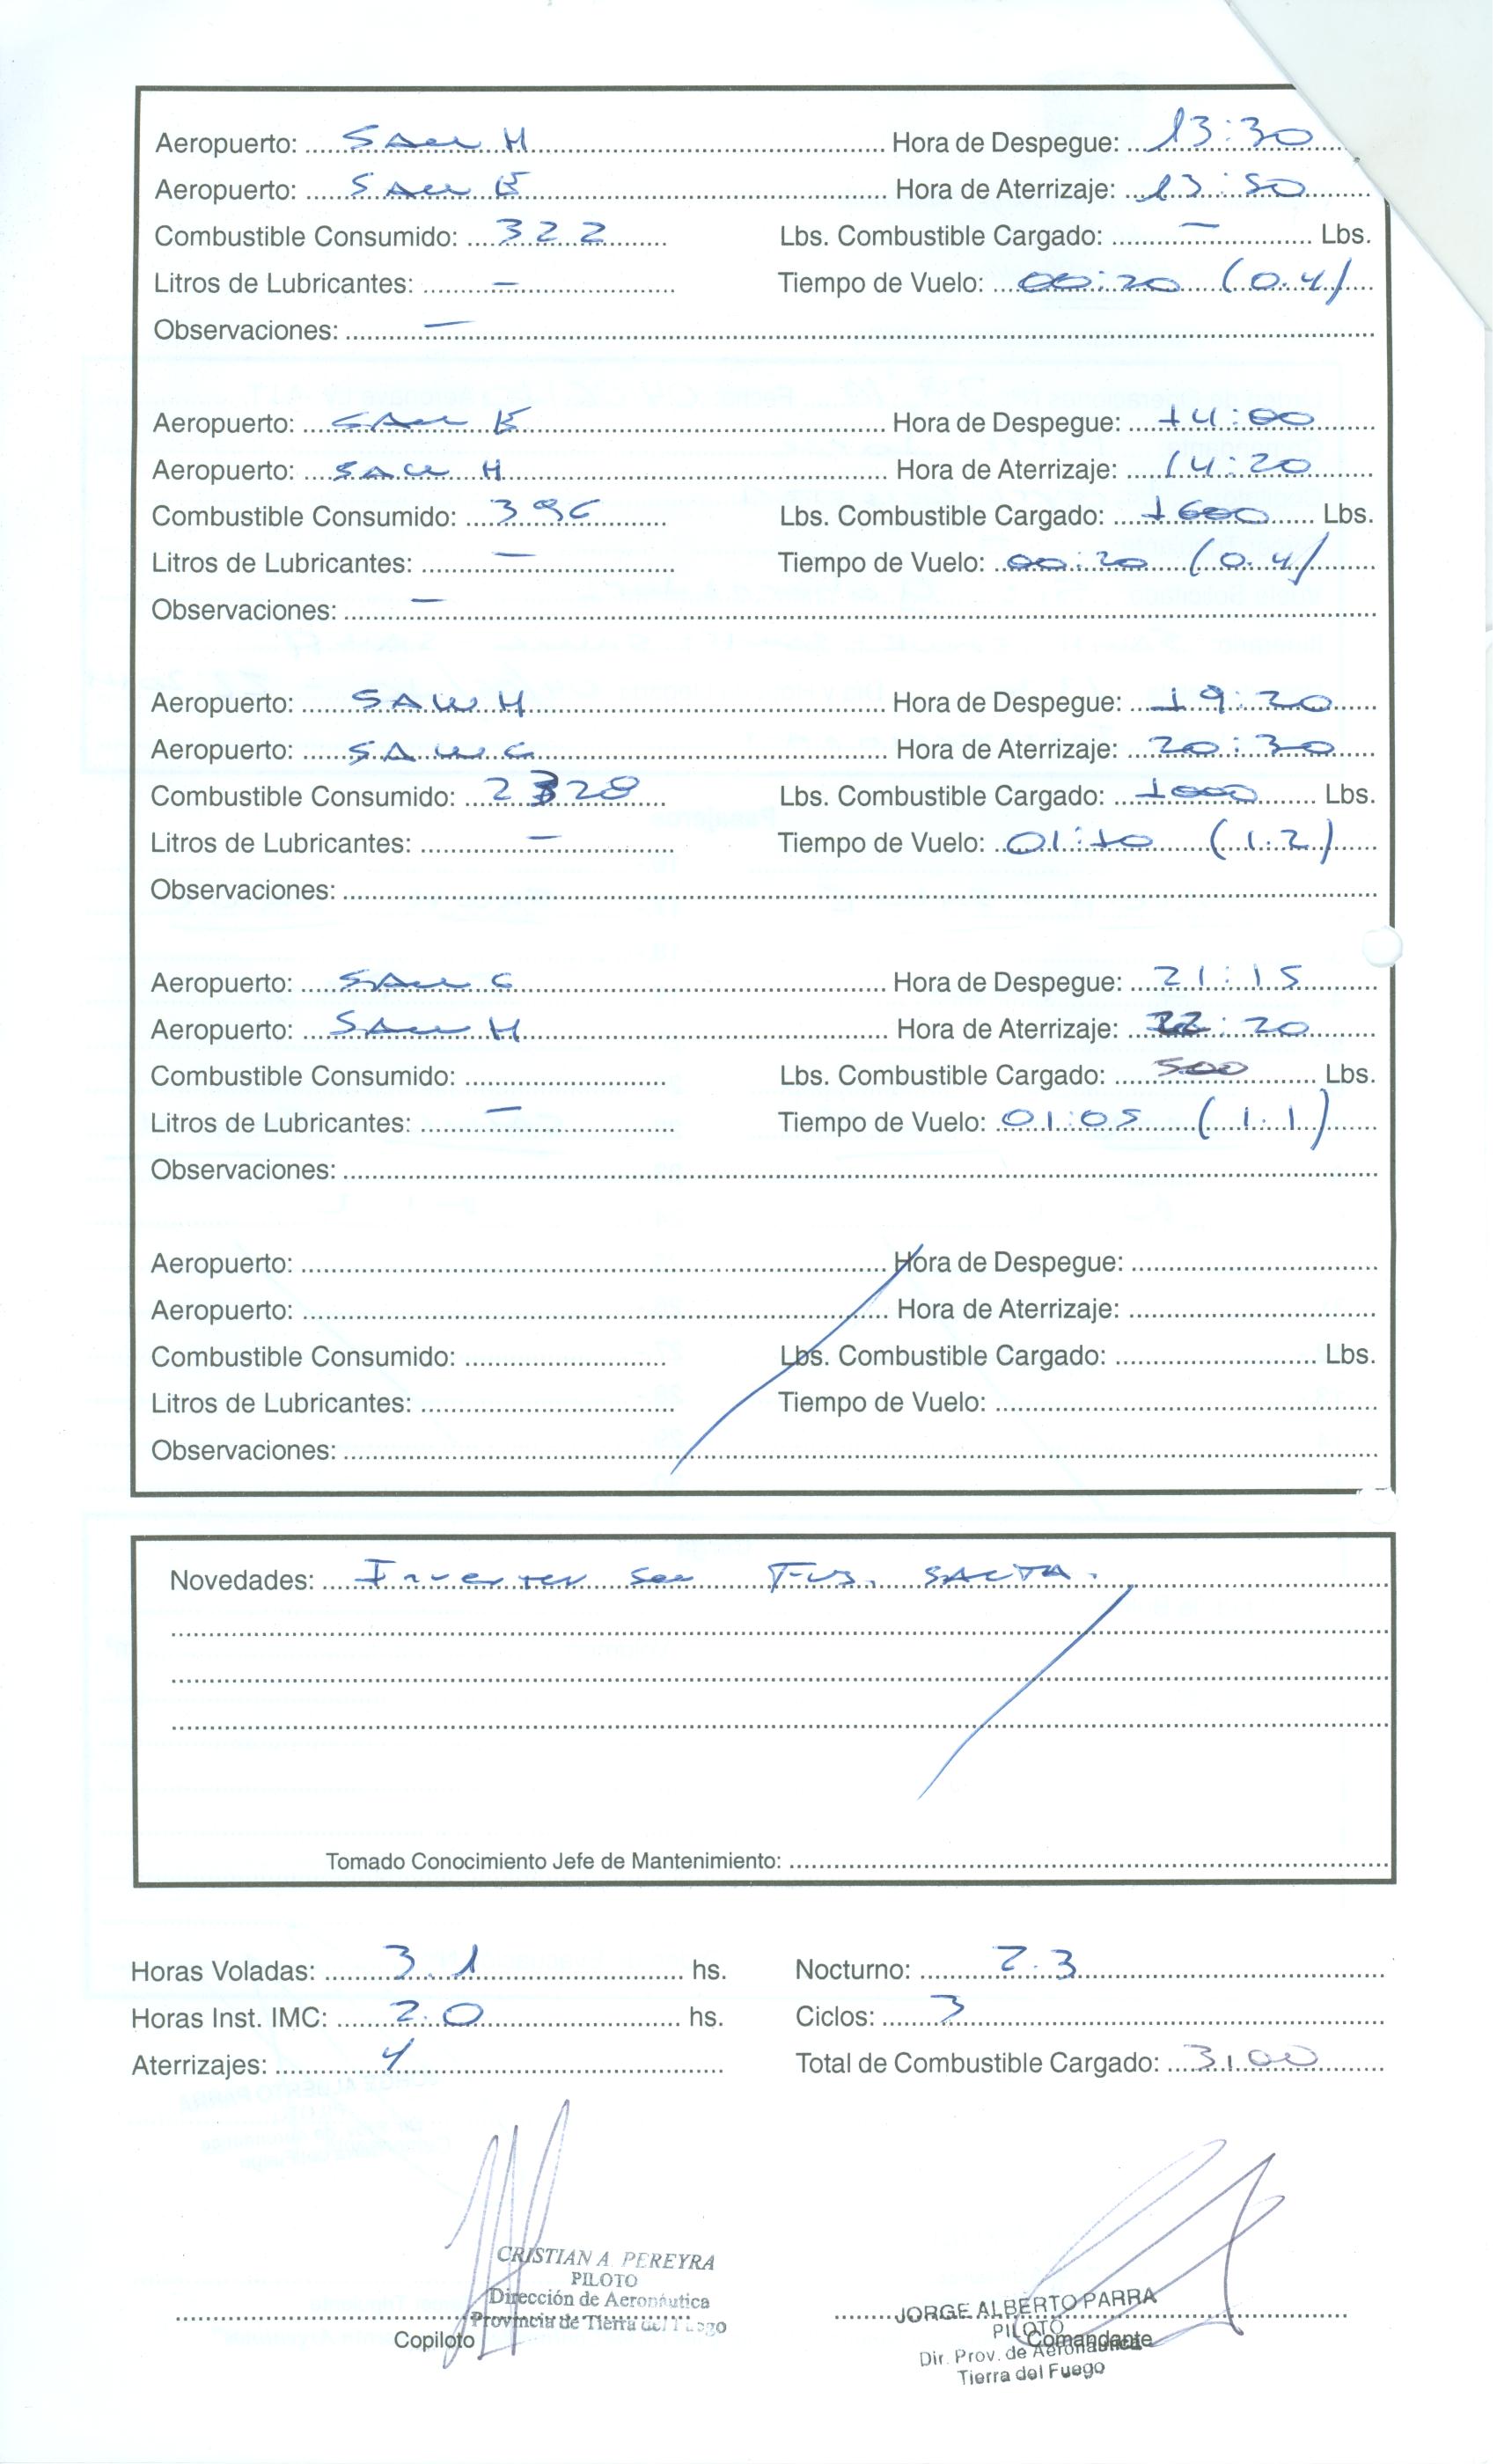 Aeropuerto: SAWH Hora de Despegue: 13:30
Aeropuerto: SAWE Hora de Aterrizaje: 13:50
Combustible Consumido: 322 Lbs. Combustible Cargado: — Lbs.
Litros de Lubricantes: — Tiempo de Vuelo: 00:20 (0.4)
Observaciones: —
Aeropuerto: SAWE Hora de Despegue: 14:00
Aeropuerto: SAWH Hora de Aterrizaje: 14:20
Combustible Consumido: 396 Lbs. Combustible Cargado: 1600 Lbs.
Litros de Lubricantes: — Tiempo de Vuelo: 00:20 (0.4)
Observaciones: —
Aeropuerto: SAWH Hora de Despegue: 19:20
Aeropuerto: SAWG Hora de Aterrizaje: 20:30
Combustible Consumido: 2328 Lbs. Combustible Cargado: 1000 Lbs.
Litros de Lubricantes: — Tiempo de Vuelo: 01:10 (1.2)
Observaciones:
Aeropuerto: SAWG Hora de Despegue: 21:15
Aeropuerto: SAWH Hora de Aterrizaje: 22:20
Combustible Consumido: Lbs. Combustible Cargado: 500 Lbs.
Litros de Lubricantes: — Tiempo de Vuelo: 01:05 (1.1)
Observaciones:
Aeropuerto: Hora de Despegue:
Aeropuerto: Hora de Aterrizaje:
Combustible Consumido: Lbs. Combustible Cargado: Lbs.
Litros de Lubricantes: Tiempo de Vuelo:
Observaciones:
Novedades: Inverter Sec Fus. SALTA.
Tomado Conocimiento Jefe de Mantenimiento:
Horas Voladas: 3.1 hs. Nocturno: 2.3
Horas Inst. IMC: 2.0 hs. Ciclos: 3
Aterrizajes: 4 Total de Combustible Cargado: 3100
CRISTIAN A. PEREYRA
PILOTO
Dirección de Aeronáutica
Provincia de Tierra del Fuego
Copiloto
JORGE ALBERTO PARRA
PILOTO
Comandante
Dir. Prov. de Aeronáutica
Tierra del Fuego